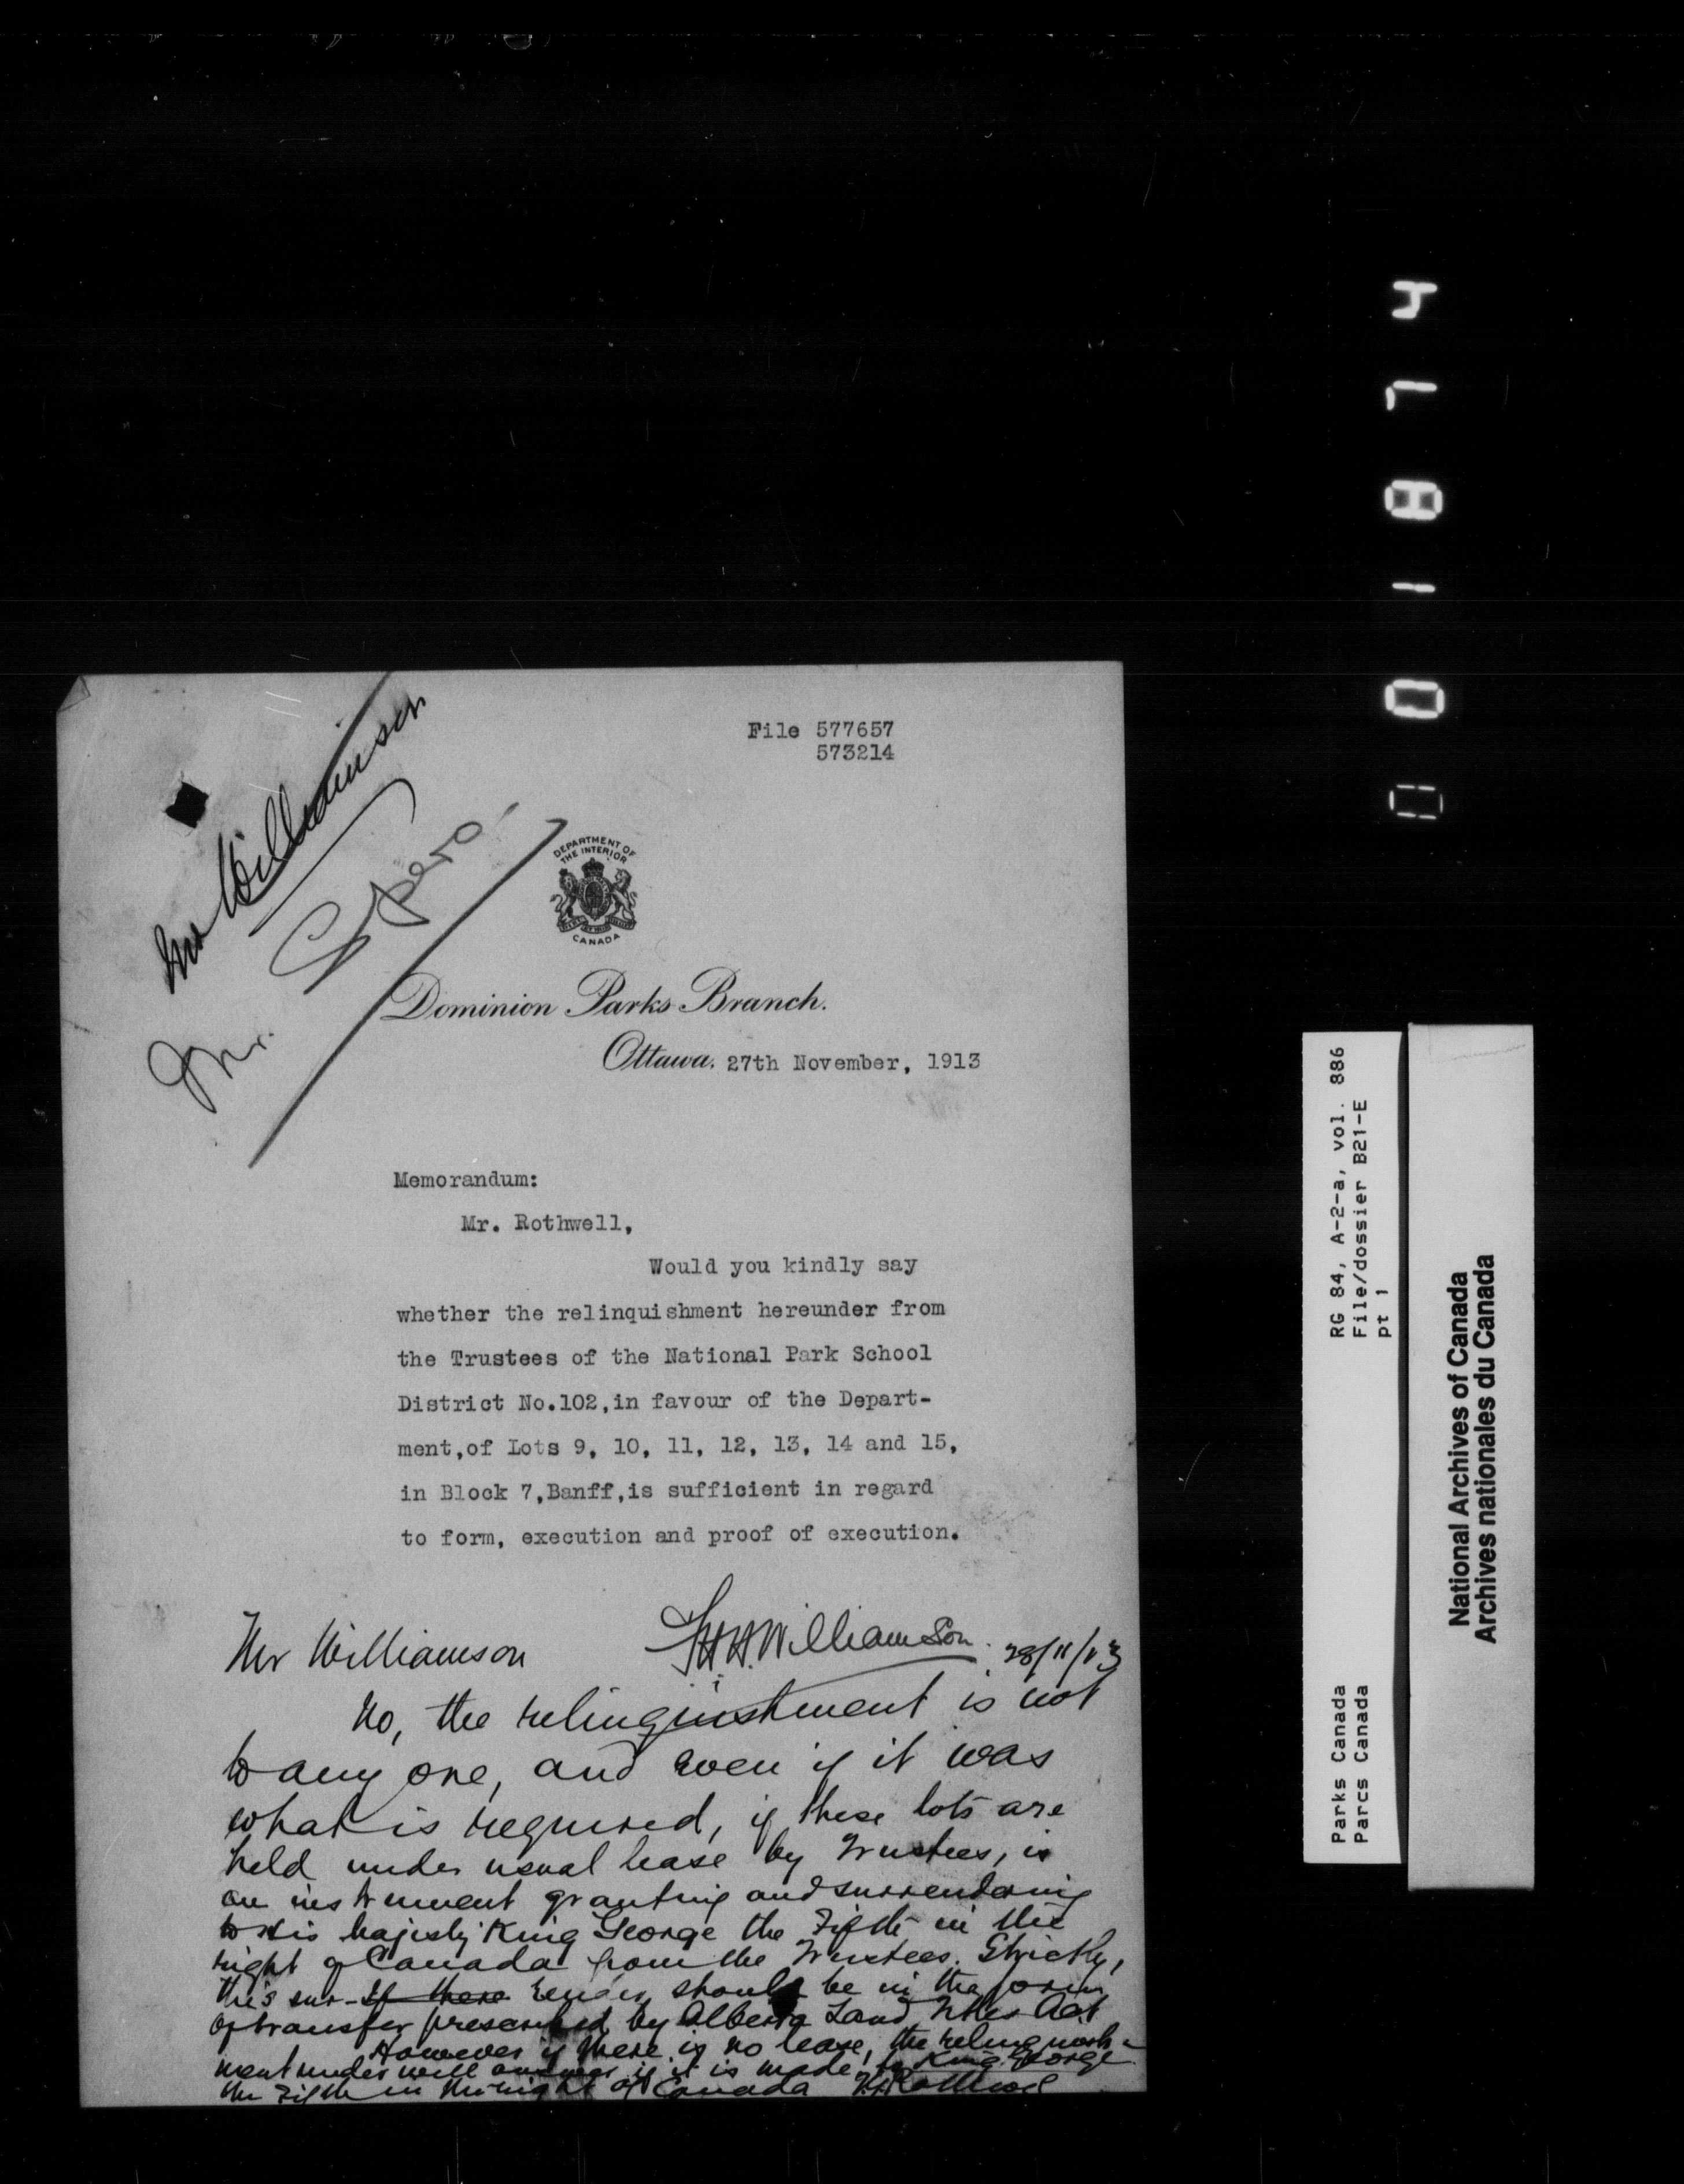 File 577657
573214
Mr Williamson
Mr.
DEPARTMENT OF
THE INTERIOR
CANADA
Dominion Parks Branch.
Ottawa. 27th November, 1913
Memorandum:
Mr. Rothwell,
Would you kindly say
whether the relinquishment hereunder from
the Trustees of the National Park School
District No.102,in favour of the Depart-
ment,of Lots 9, 10, 11, 12, 13, 14 and 15,
in Block 7,Banff,is sufficient in regard
to form, execution and proof of execution.
F.H.H.Williamson.
Mr Williamson
28/11/13
No, the relinquishment is not
to any one, and even if it was
what is required, if these lots are
held under usual lease by Trustees, is
an instrument granting and surrendering
to His Majesty King George the Fifth in the
right of Canada from the Trustees. Strictly,
this sur-If there render should be in the form
of transfer prescribed by Alberta Land Titles Act
However if there is no lease, the relinquish-
ment under will answer if it is made to King George
the Fifth in the right of Canada Rothwell
RG 84, A-2-a, vol. 886
File/dossier B21-E
pt 1
Parks Canada
Parcs Canada
National Archives of Canada
Archives nationales du Canada